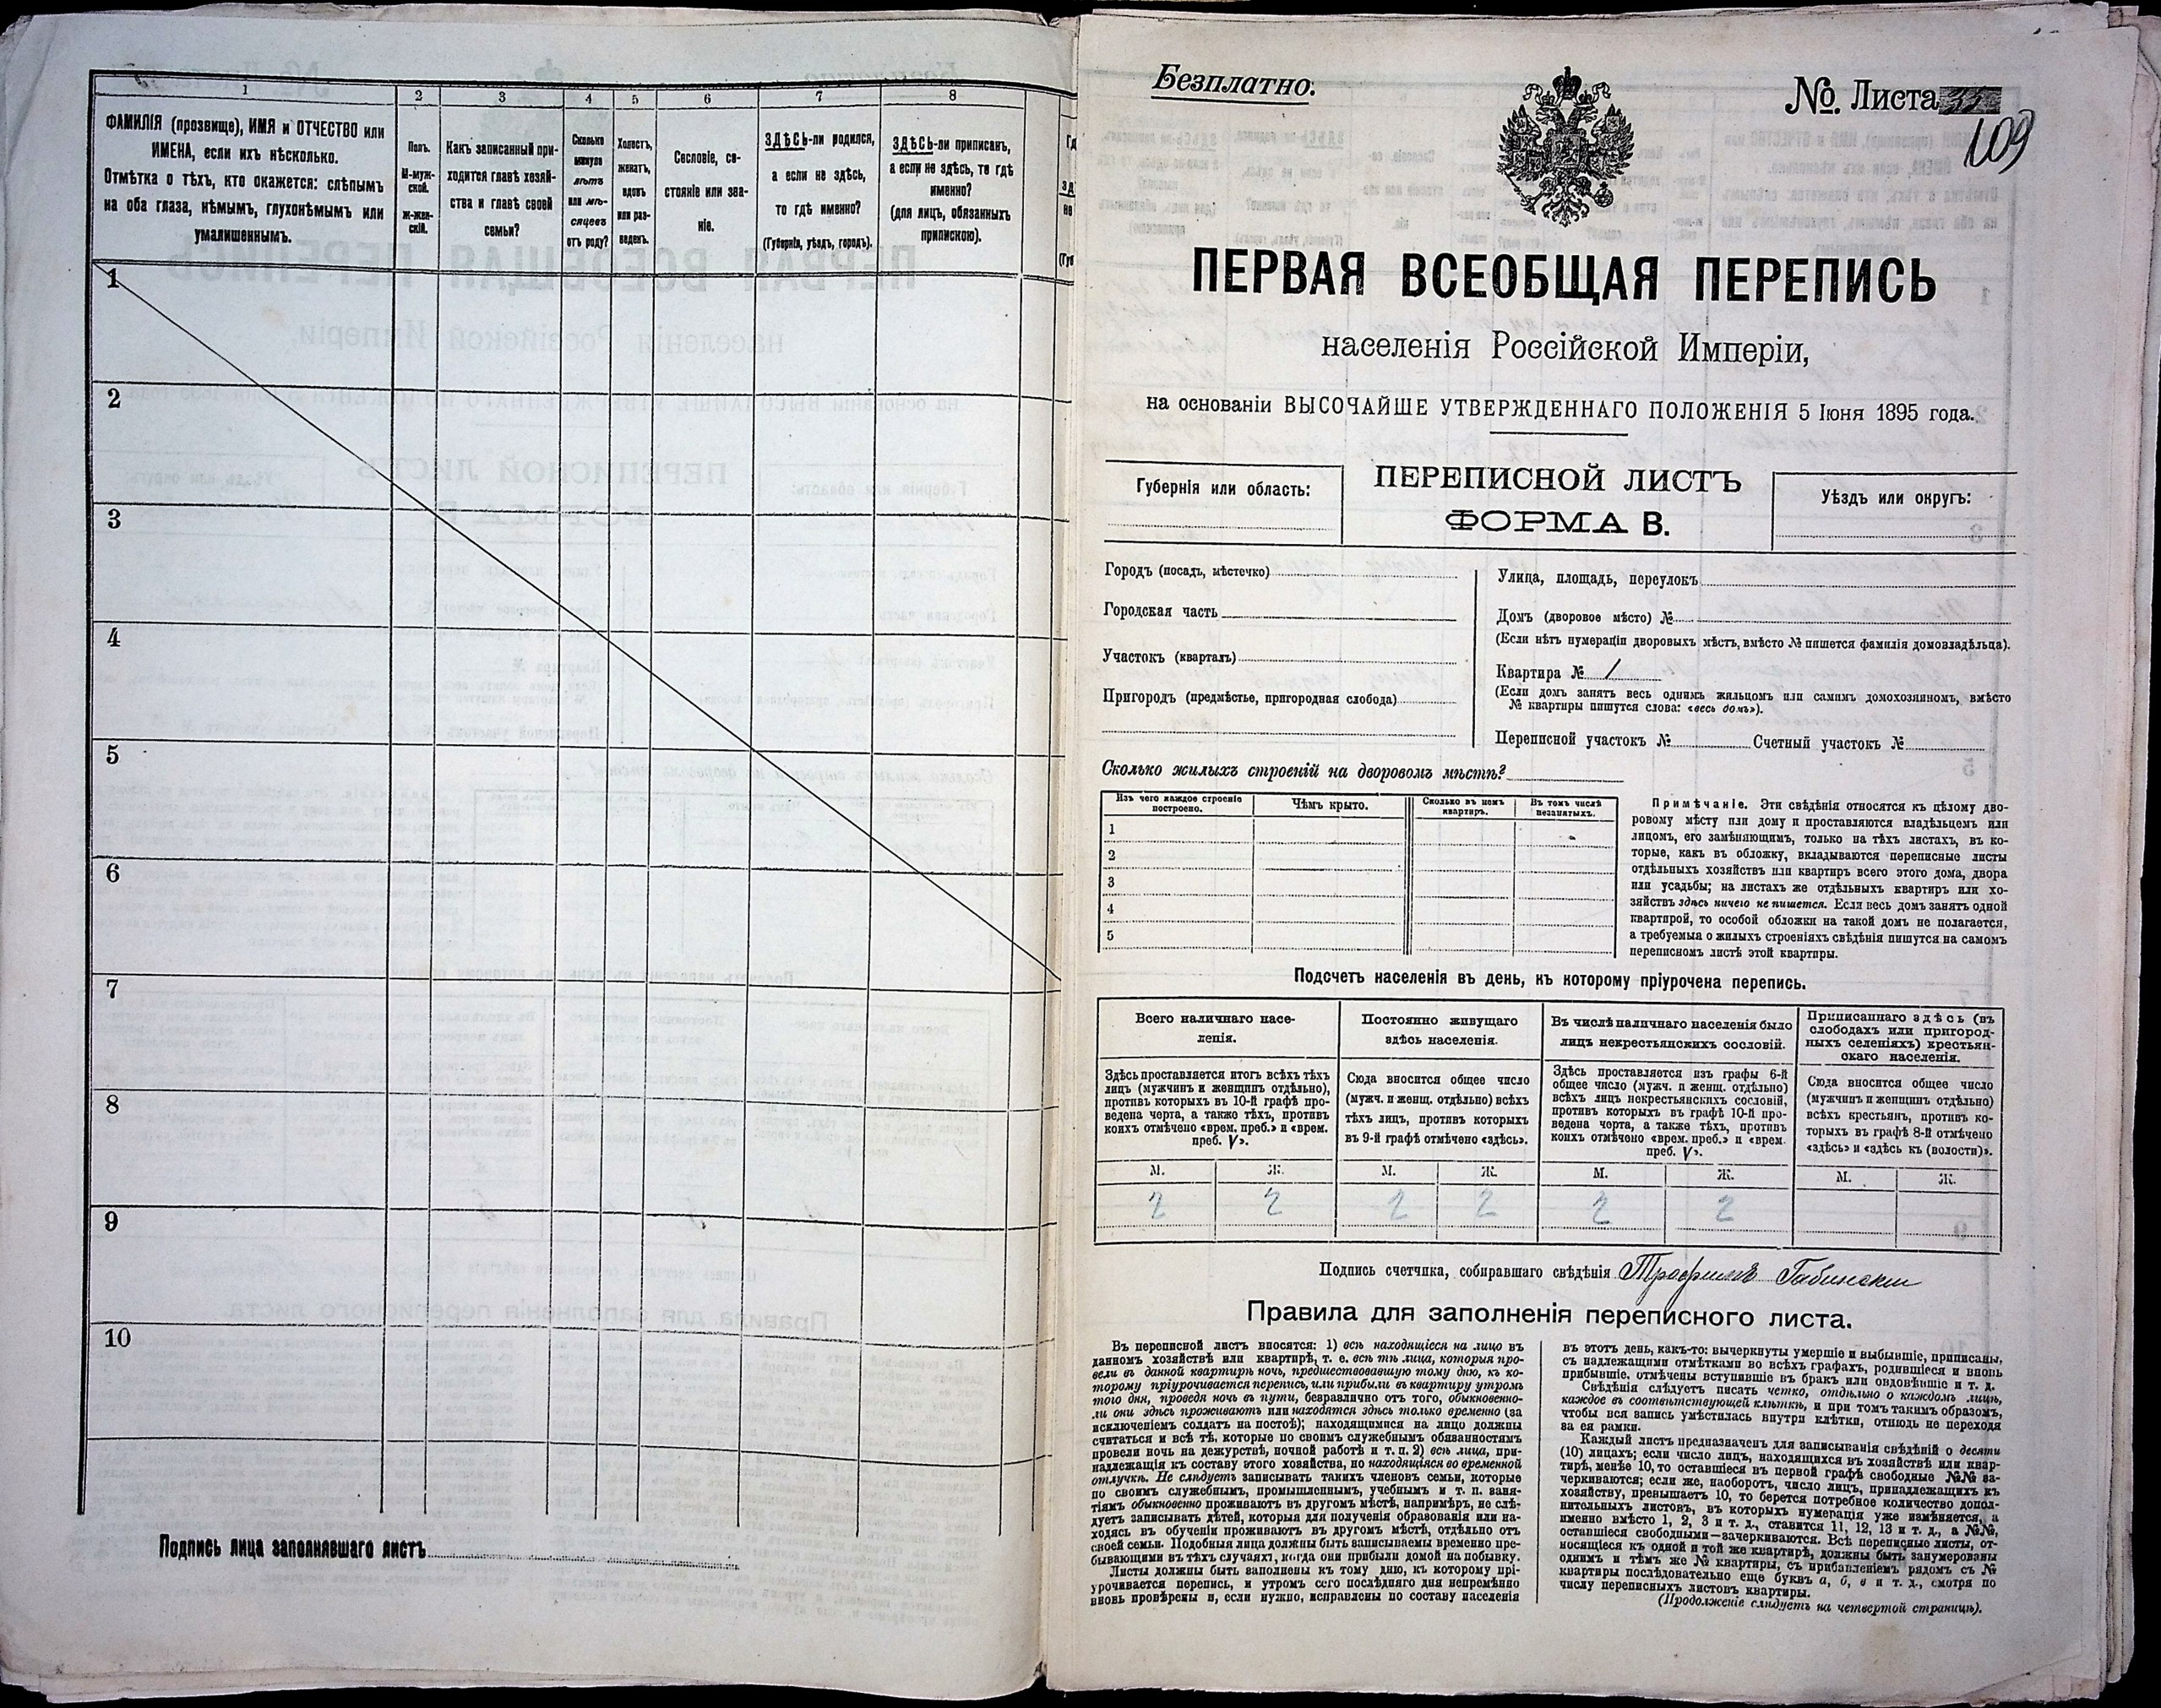 1
2
3
4
5
6
7
8
ФАМИЛІЯ (прозвище), ИМЯ и ОТЧЕСТВО или
ИМЕНА, если ихъ нѣсколько.
Отмѣтка о тѣхъ, кто окажется: слѣпымъ
на оба глаза, нѣмымъ, глухонѣмымъ или
умалишеннымъ.
Полъ.
М-муж-
ской.
ж-жен-
скій.
Какъ записанный при-
ходится главѣ хозяй-
ства и главѣ своей
семьи?
Сколько
минуло
лѣтъ
или мѣ-
сяцевъ
отъ роду?
Холостъ,
женатъ,
вдовъ
или раз-
веденъ.
Сословіе, со-
стояніе или зва-
ніе.
ЗДѢСЬ-ли родился,
а если не здѣсь,
то гдѣ именно?
(Губернія, уѣздъ, городъ).
ЗДѢСЬ-ли приписанъ,
а если не здѣсь, то гдѣ
именно?
(для лицъ, обязанныхъ
припискою).
1
2
3
4
5
6
7
8
9
10
Подпись лица заполнявшаго листъ
Безплатно.
№ Листа 35
109
ПЕРВАЯ ВСЕОБЩАЯ ПЕРЕПИСЬ
населенія Россійской Имперіи,
на основаніи ВЫСОЧАЙШЕ УТВЕРЖДЕННАГО ПОЛОЖЕНІЯ 5 Іюня 1895 года.
Губернія или область:
ПЕРЕПИСНОЙ ЛИСТЪ
ФОРМА В.
Уѣздъ или округъ:
Городъ (посадъ, мѣстечко)
Городская часть
Участокъ (кварталъ)
Пригородъ (предмѣстье, пригородная слобода)
Улица, площадь, переулокъ
Домъ (дворовое мѣсто) №
(Если нѣтъ нумераціи дворовыхъ мѣстъ, вмѣсто № пишется фамилія домовладѣльца).
Квартира № 1
(Если домъ занятъ весь однимъ жильцомъ или самимъ домохозяиномъ, вмѣсто
№ квартиры пишутся слова: «весь домъ»).
Переписной участокъ № Счетный участокъ №
Сколько жилыхъ строеній на дворовомъ мѣстѣ?
Изъ чего каждое строеніе
построено.
Чѣмъ крыто.
Сколько въ немъ
квартиръ.
Въ томъ числѣ
незанятыхъ.
1
2
3
4
5
Примѣчаніе. Эти свѣдѣнія относятся къ цѣлому дво-
ровому мѣсту или дому и проставляются владѣльцемъ или
лицомъ, его замѣняющимъ, только на тѣхъ листахъ, въ ко-
торые, какъ въ обложку, вкладываются переписные листы
отдѣльныхъ хозяйствъ или квартиръ всего этого дома, двора
или усадьбы; на листахъ же отдѣльныхъ квартиръ или хо-
зяйствъ здѣсь ничего не пишется. Если весь домъ занятъ одной
квартирой, то особой обложки на такой домъ не полагается,
а требуемыя о жилыхъ строеніяхъ свѣдѣнія пишутся на самомъ
переписномъ листѣ этой квартиры.
Подсчетъ населенія въ день, къ которому пріурочена перепись.
Всего наличнаго насе-
ленія.
Здѣсь проставляется итогъ всѣхъ тѣхъ
лицъ (мужчинъ и женщинъ отдѣльно),
противъ которыхъ въ 10-й графѣ про-
ведена черта, а также тѣхъ, противъ
коихъ отмѣчено «врем. преб.» и «врем.
преб. V».
Постоянно живущаго
здѣсь населенія.
Сюда вносится общее число
(мужч. и женщ. отдѣльно) всѣхъ
тѣхъ лицъ, противъ которыхъ
въ 9-й графѣ отмѣчено «здѣсь».
Въ числѣ наличнаго населенія было
лицъ некрестьянскихъ сословій.
Здѣсь проставляется изъ графы 6-й
общее число (мужч. и женщ. отдѣльно)
всѣхъ лицъ некрестьянскихъ сословій,
противъ которыхъ въ графѣ 10-й про-
ведена черта, а также тѣхъ, противъ
коихъ отмѣчено «врем. преб.» и «врем.
преб. V».
Приписаннаго здѣсь (въ
слободахъ или пригород-
ныхъ селеніяхъ) крестьян-
скаго населенія.
Сюда вносится общее число
(мужчинъ и женщинъ отдѣльно)
всѣхъ крестьянъ, противъ ко-
торыхъ въ графѣ 8-й отмѣчено
«здѣсь» и «здѣсь къ (волости)».
М. Ж. М. Ж. М. Ж. М. Ж.
2 2 2 2 2 2
Подпись счетчика, собиравшаго свѣдѣнія Трофимъ
Правила для заполненія переписного листа.
Въ переписной листъ вносятся: 1) всѣ находящіеся на лицо въ
данномъ хозяйствѣ или квартирѣ, т. е. всѣ тѣ лица, которыя про-
вели въ данной квартирѣ ночь, предшествовавшую тому дню, къ ко-
торому пріурочивается перепись, или прибыли въ квартиру утромъ
того дня, проведя ночь въ пути, безразлично отъ того, обыкновенно-
ли они здѣсь проживаютъ или находятся здѣсь только временно (за
исключеніемъ солдатъ на постоѣ); находящимися на лицо должны
считаться и всѣ тѣ, которые по своимъ служебнымъ обязанностямъ
провели ночь на дежурствѣ, ночной работѣ и т. п. 2) всѣ лица, при-
надлежащія къ составу этого хозяйства, но находящіяся во временной
отлучкѣ. Не слѣдуетъ записывать такихъ членовъ семьи, которые
по своимъ служебнымъ, промышленнымъ, учебнымъ и т. п. заня-
тіямъ обыкновенно проживаютъ въ другомъ мѣстѣ, напримѣръ, не слѣ-
дуетъ записывать дѣтей, которыя для полученія образованія или на-
ходясь въ обученіи проживаютъ въ другомъ мѣстѣ, отдѣльно отъ
своей семьи. Подобныя лица должны быть записываемы временно пре-
бывающими въ тѣхъ случаяхъ, когда они прибыли домой на побывку.
Листы должны быть заполнены къ тому дню, къ которому прі-
урочивается перепись, и утромъ сего послѣдняго дня непремѣнно
вновь провѣрены и, если нужно, исправлены по составу населенія
въ этотъ день, какъ-то: вычеркнуты умершіе и выбывшіе, приписаны,
съ надлежащими отмѣтками во всѣхъ графахъ, родившіеся и вновь
прибывшіе, отмѣчены вступившіе въ бракъ или овдовѣвшіе и т. д.
Свѣдѣнія слѣдуетъ писать четко, отдѣльно о каждомъ лицѣ,
каждое въ соотвѣтствующей клѣткѣ, и при томъ такимъ образомъ,
чтобы вся запись умѣстилась внутри клѣтки, отнюдь не переходя
за ея рамки.
Каждый листъ предназначенъ для записыванія свѣдѣній о десяти
(10) лицахъ; если число лицъ, находящихся въ хозяйствѣ или квар-
тирѣ, менѣе 10, то оставшіеся въ первой графѣ свободные №№ за-
черкиваются; если же, наоборотъ, число лицъ, принадлежащихъ къ
хозяйству, превышаетъ 10, то берется потребное количество допол-
нительныхъ листовъ, въ которыхъ нумерація уже измѣняется, а
именно вмѣсто 1, 2, 3 и т. д., ставится 11, 12, 13 и т. д., а №№,
оставшіеся свободными—зачеркиваются. Всѣ переписные листы, от-
носящіеся къ одной и той же квартирѣ, должны быть занумерованы
однимъ и тѣмъ же № квартиры, съ прибавленіемъ рядомъ съ №
квартиры послѣдовательно еще буквъ а, б, в и т. д., смотря по
числу переписныхъ листовъ квартиры.
(Продолженіе слѣдуетъ на четвертой страницѣ).